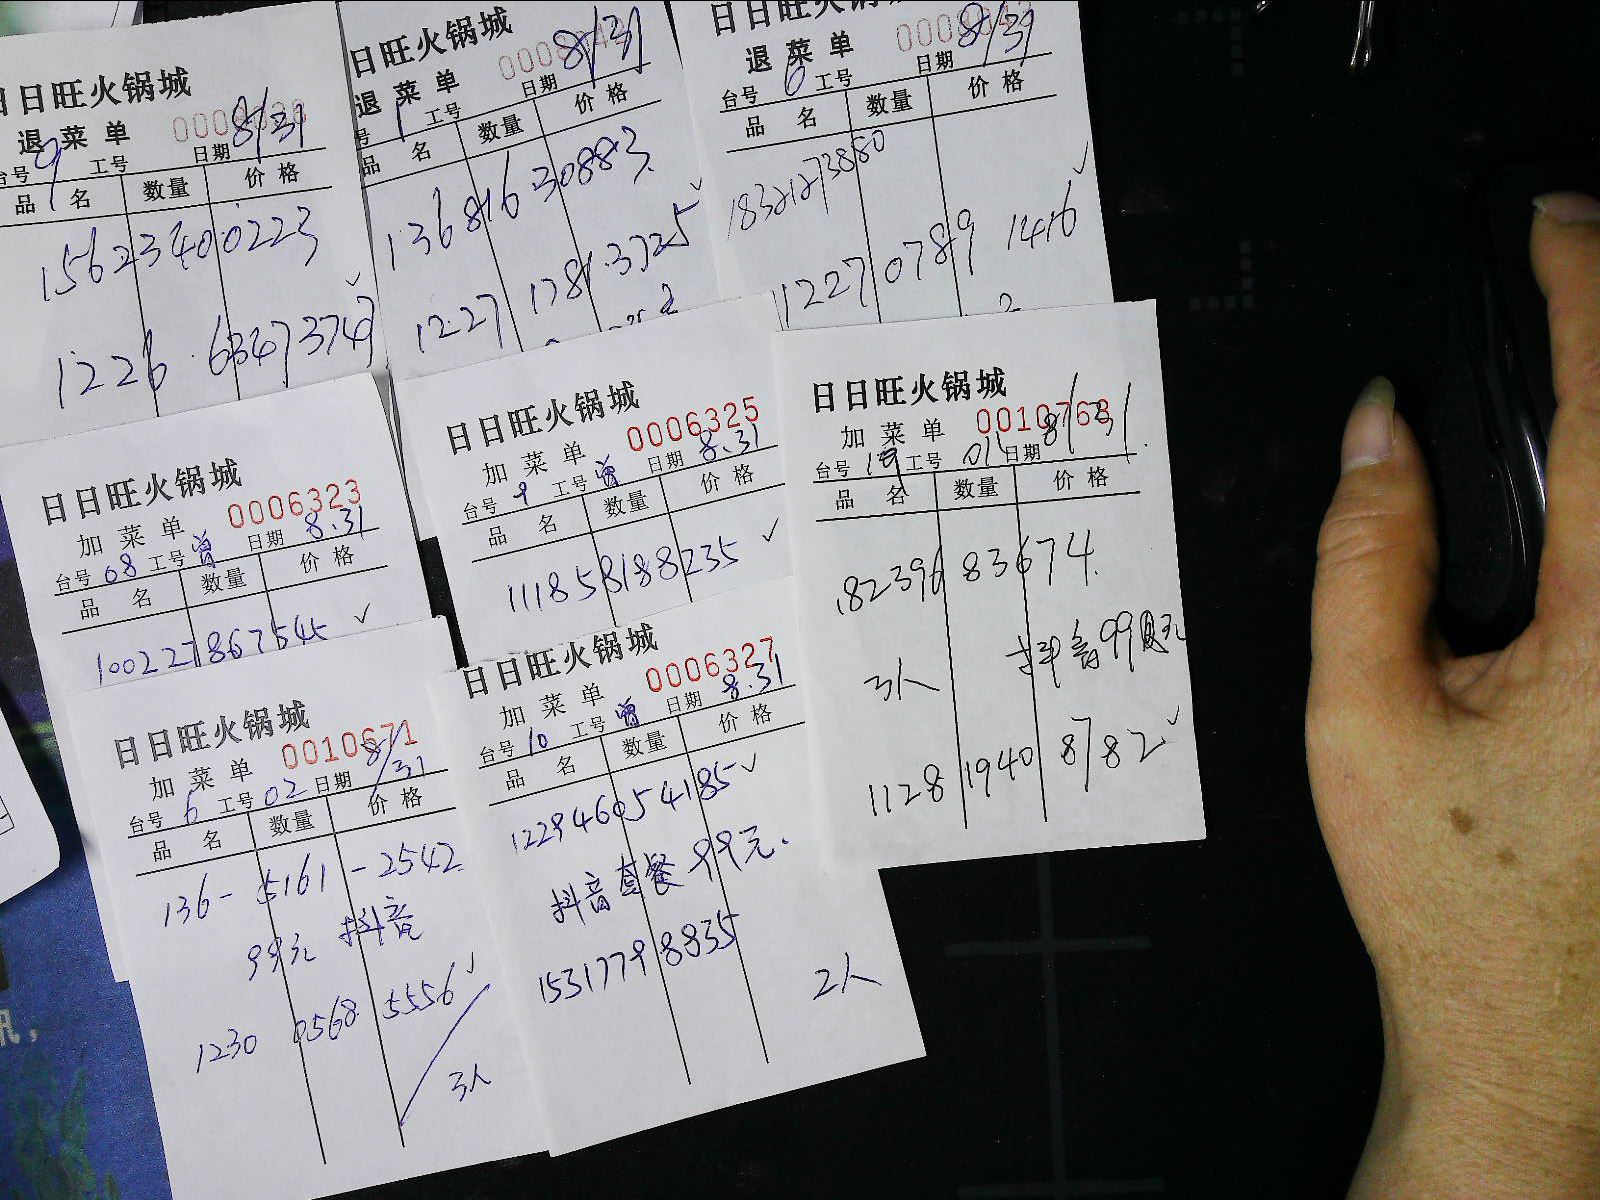 日日旺火锅城
退菜单
8/31
台号 9 工号 日期
品名 数量 价格
15623400223
1226 63473747
日旺火锅城
退菜单
8/31
号 1 工号 日期
品名 数量 价格
13681630883
1227 1781 3725
日日旺火锅城
退菜单
8/31
台号 6 工号 日期
品名 数量 价格
18321273880
11227 0789 1416
日日旺火锅城
加菜单 0006323
台号 08 工号 曾 日期 8.31
品名 数量 价格
100227867545
日日旺火锅城
加菜单 0006325
台号 9 工号 曾 日期 8.31
品名 数量 价格
111858188235
日日旺火锅城
加菜单 0010768
台号 19 工号 011 日期 8/31
品名 数量 价格
18239683674
3人 抖音99元
1128 1940 8782
日日旺火锅城
加菜单 0010671
台号 6 工号 02 日期 8/31
品名 数量 价格
136-5161-2542
99元 抖音
1230 0568 5556
3人
日日旺火锅城
加菜单 0006327
台号 10 工号 曾 日期 8.31
品名 数量 价格
122946054185
抖音套餐99元.
15317798835
2人